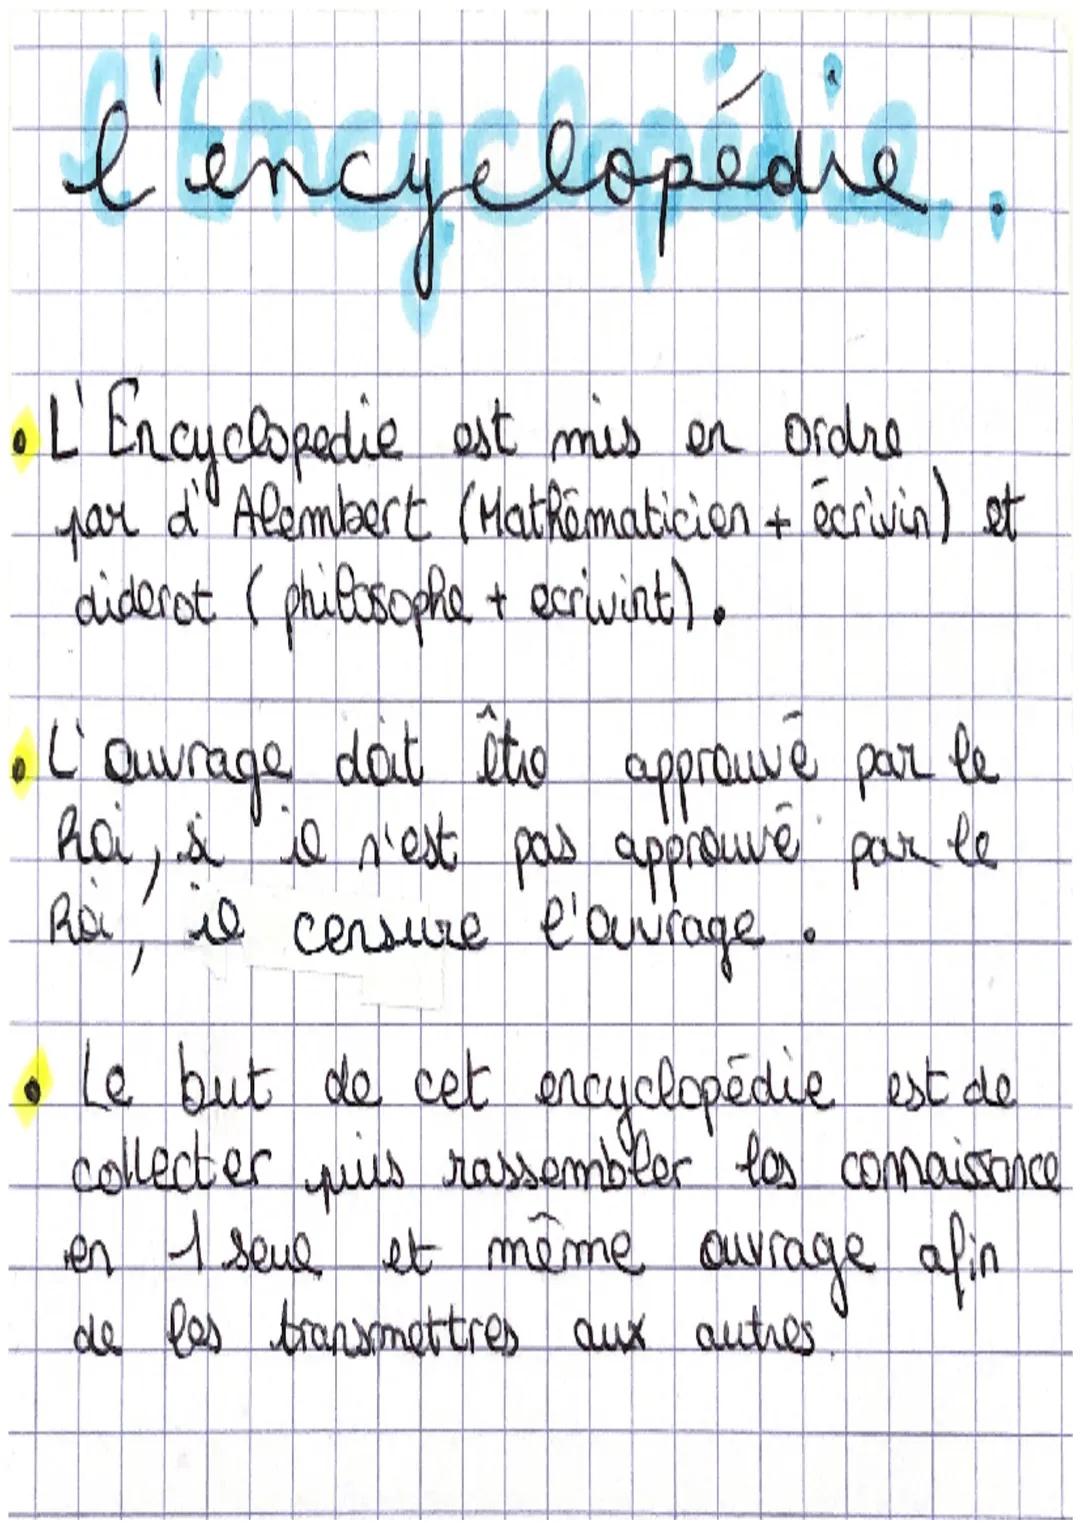 l'encyclopédie.
• L'Encyclopedie est mis en ordre
par d'Alembert (Mathématicien + écrivin) et
diderot (philosophe + ecrivint).
• L'ouvrage doit être approuvé par le
Roi, si il n'est pas approuvé par le
Roi, il censure l'ouvrage.
• Le but de cet encyclopédie est de
collecter puis rassembler les connaissance
en 1 seul et même ouvrage afin
de les transmettres aux autres.